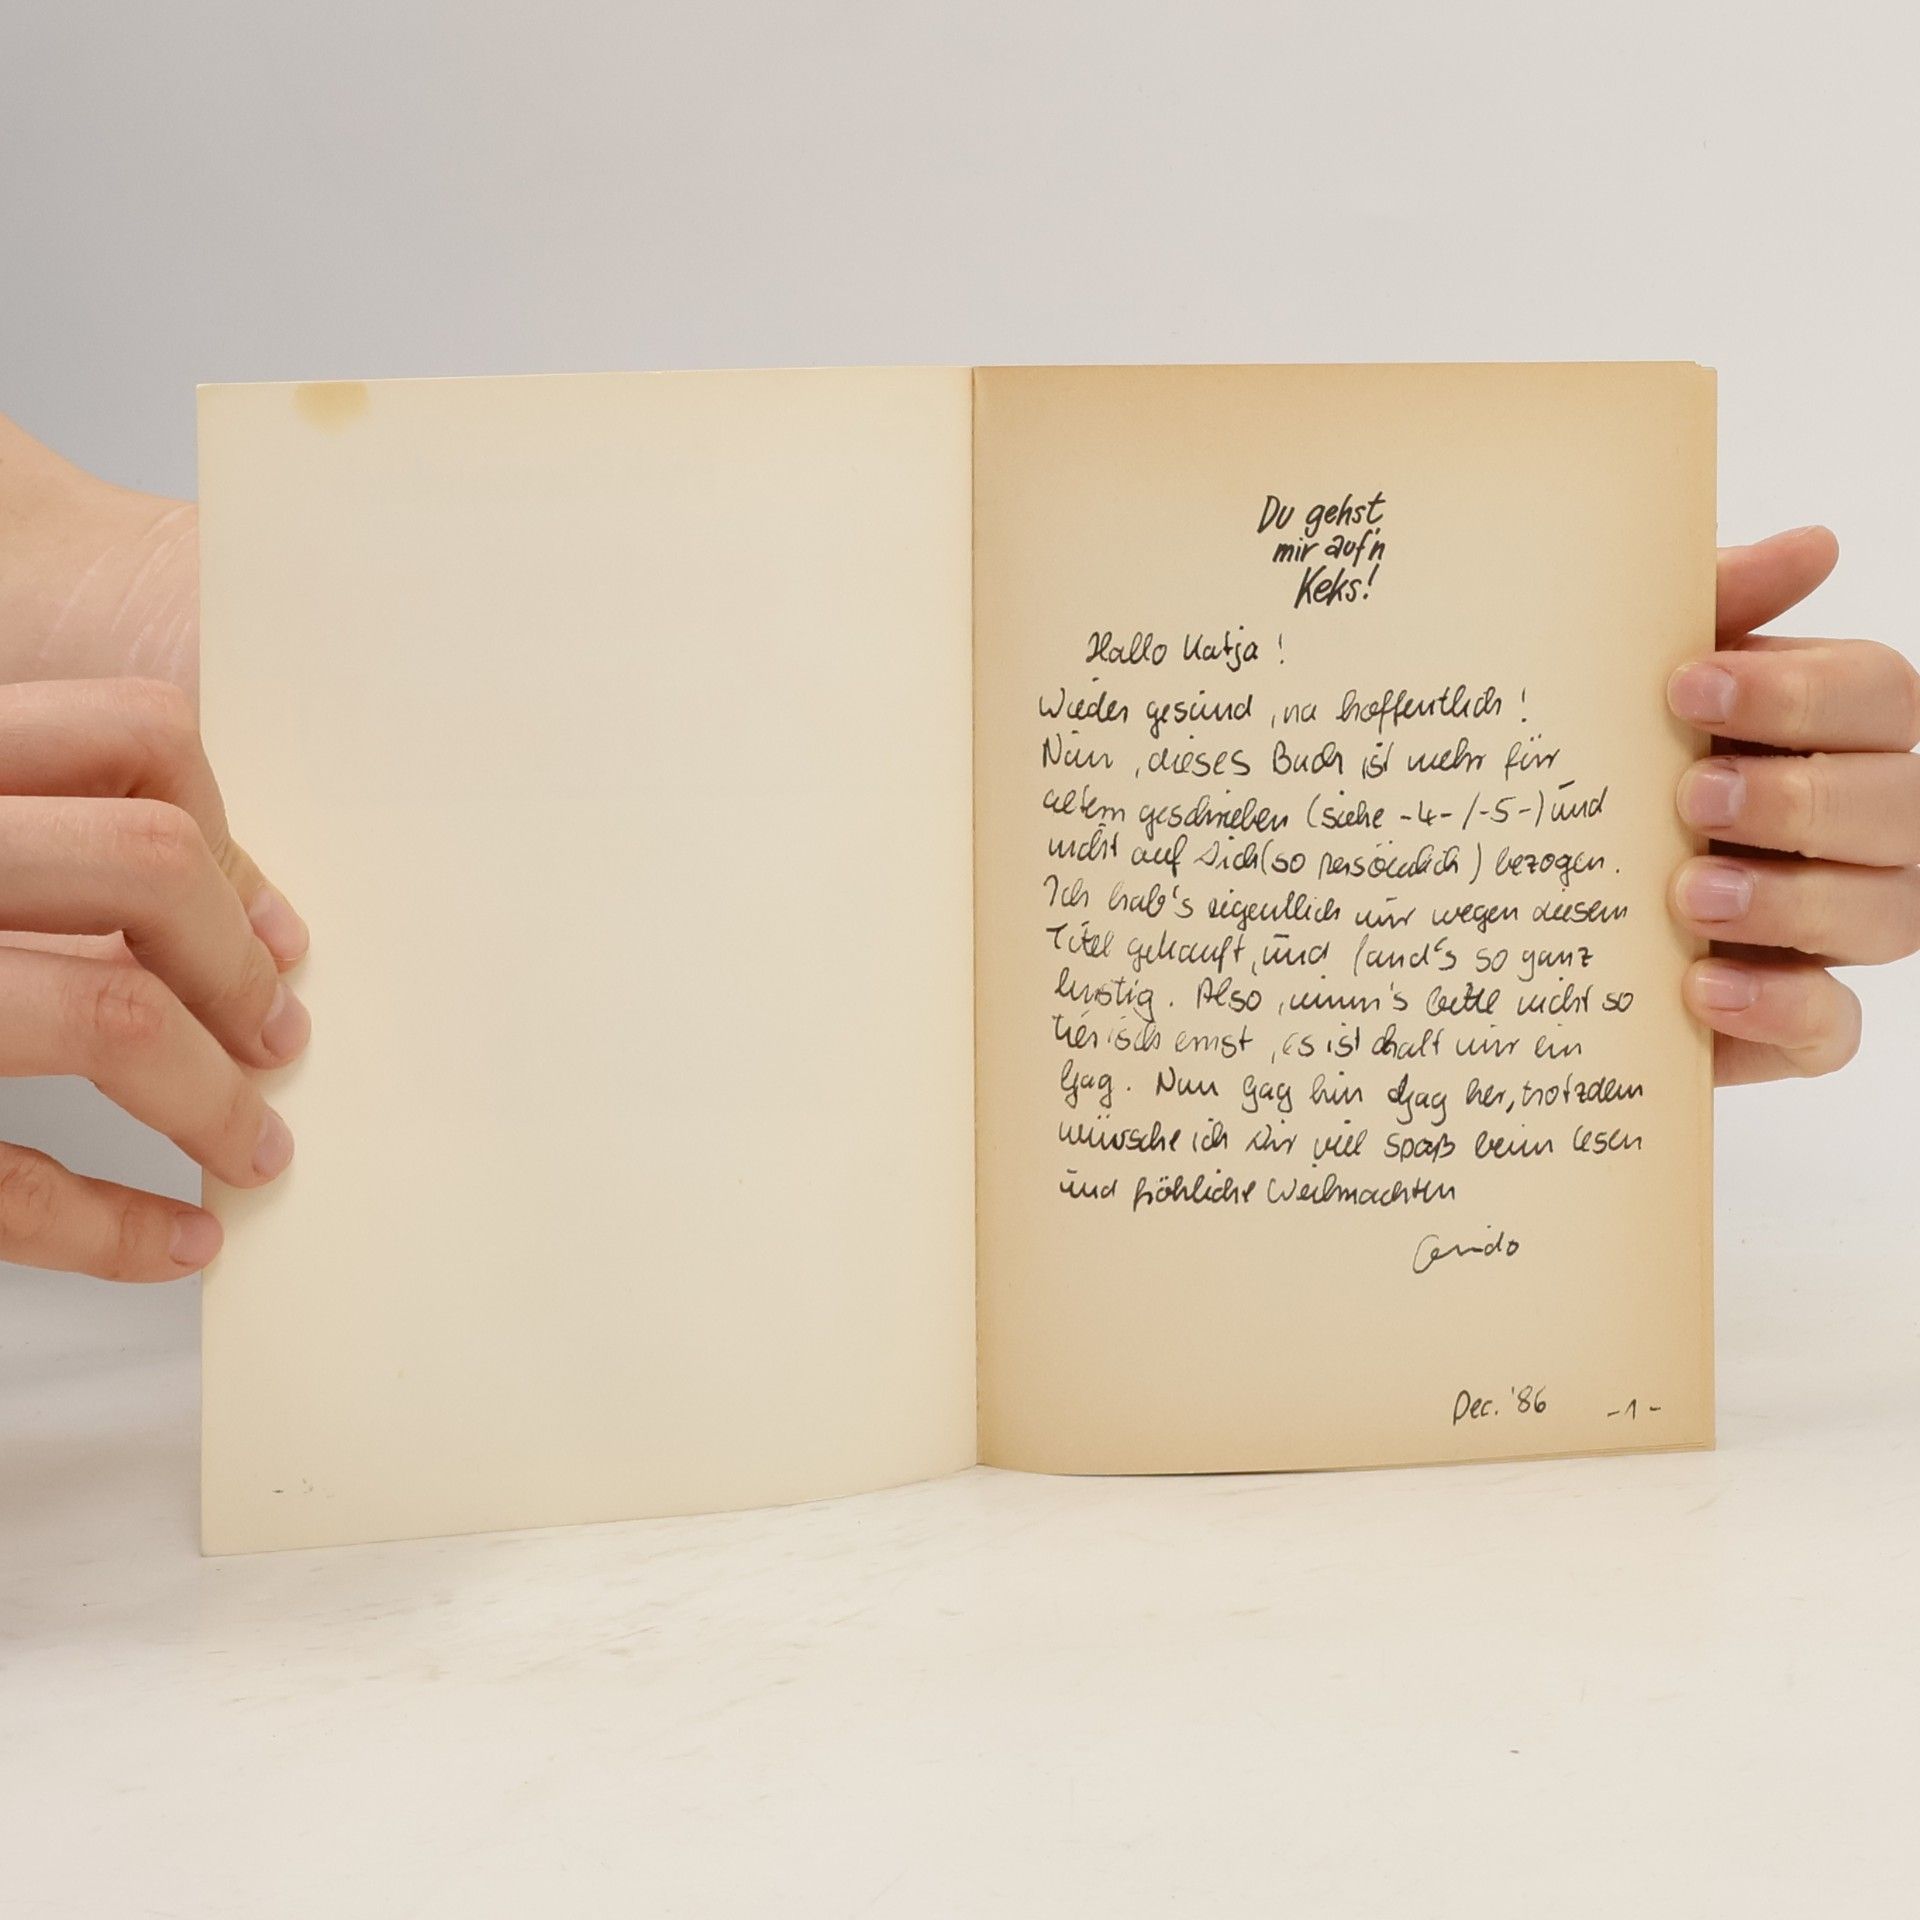 Du gehst
mir auf'n
Keks!
Hallo Katja !
Wieder gesund, na hoffentlich !
Nun, dieses Buch ist mehr für
geschrieben (siehe -4-/-5-) und
nicht auf Dich (so persönlich) bezogen.
Ich hab's eigentlich nur wegen diesem
Titel gekauft, und fand's so ganz
lustig. Also, nimm's bitte nicht so
tierisch ernst, es ist halt nur ein
Gag. Nun Gag hin Gag her, trotzdem
wünsche ich Dir viel Spaß beim lesen
und fröhliche Weihnachten
Dec. '86 -1-